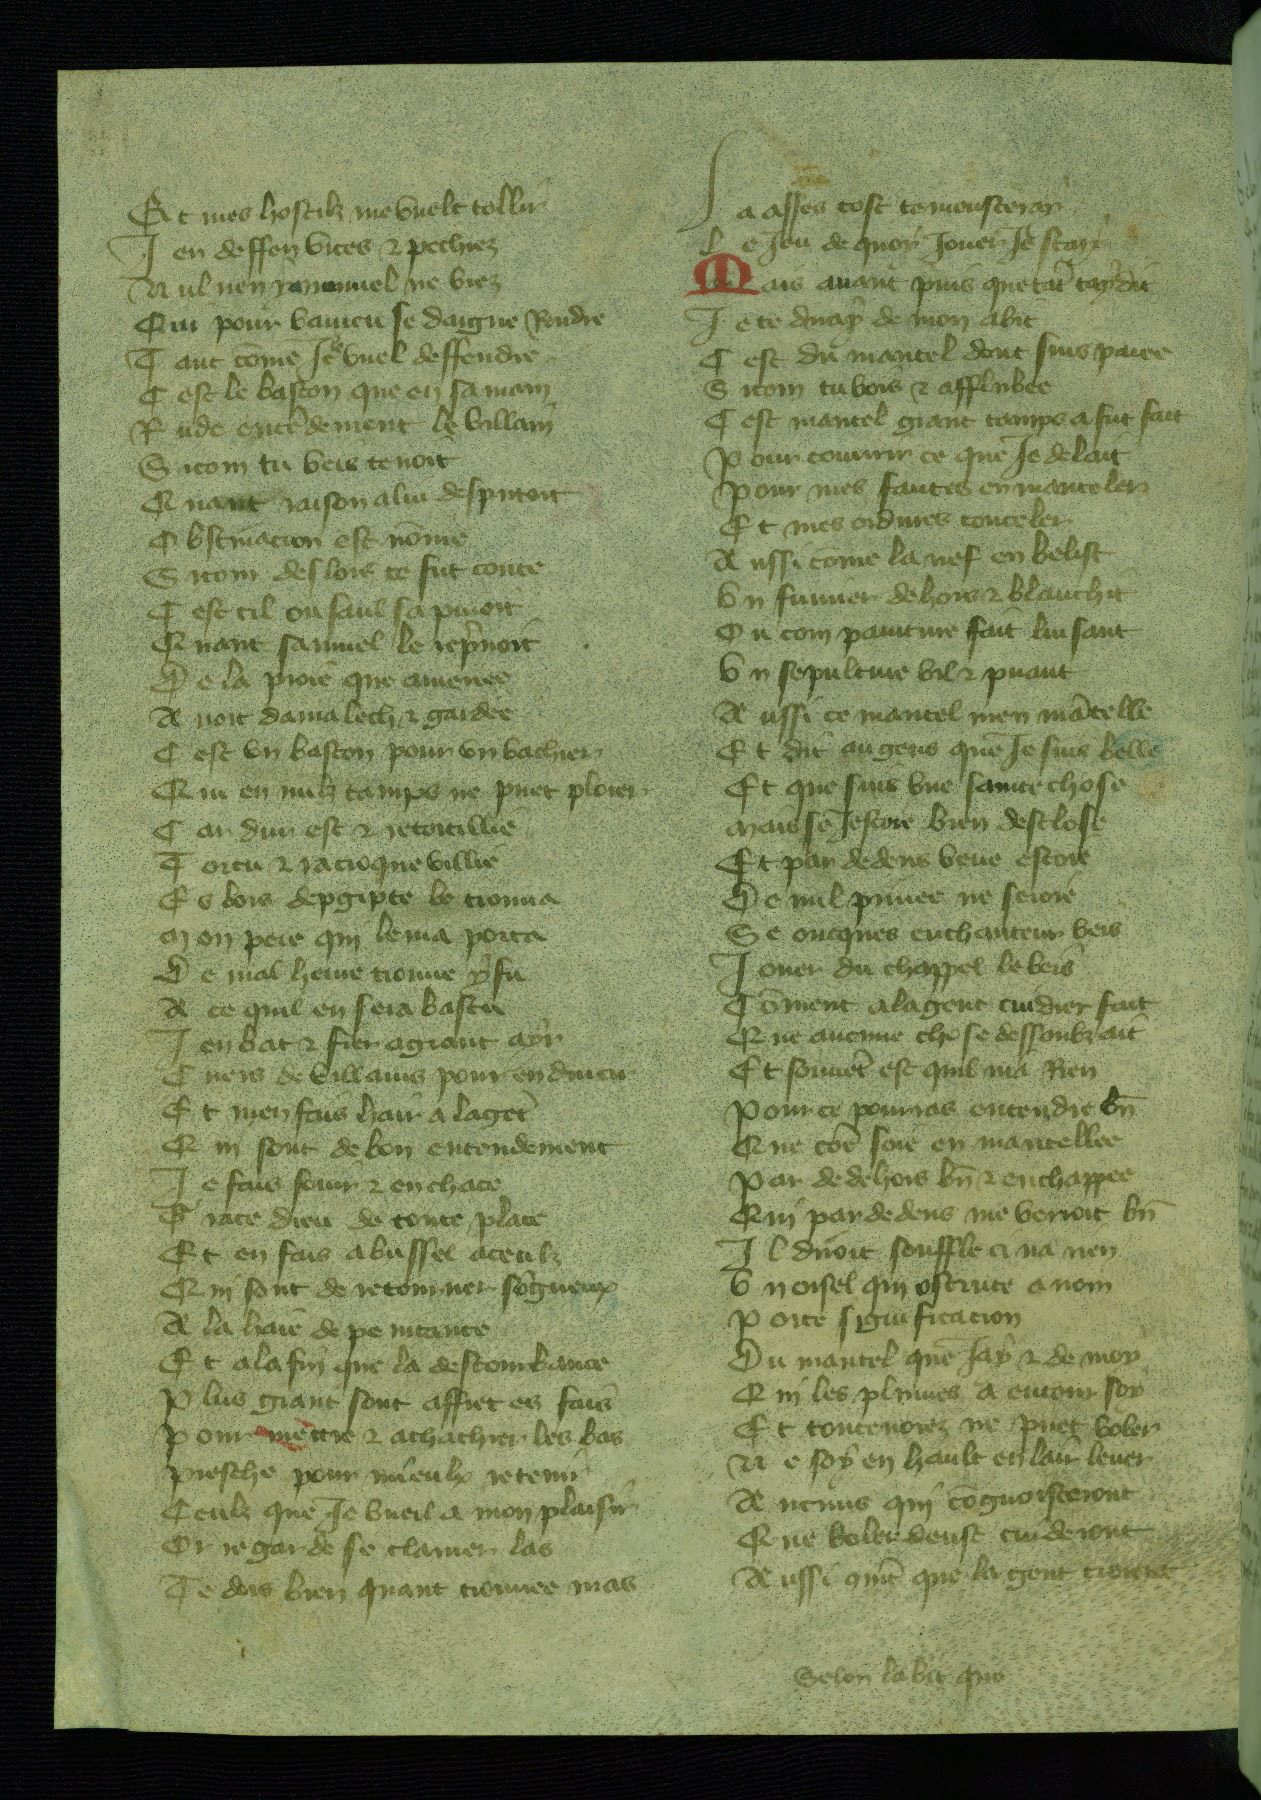 Et mes hostilz me vuelt tollir
J en deffen vices & pechiez
N ul nen y a nouuel ne viez
Qui pour vaincu se daigne Rendre
T ant cōme Je vuel deffendre
C est le baston que en sa main
R ude entēdement le villain
S icom tu veis tenoit
Q uant raison a lui desputoit
O bstinacion est nōme
S icom des lors te fut conte
C est cil ou saul sapuioit
Q uant samuel le repnoit
D e la proie que amenee
A uoit damalech & gardee
C est vn baston pour vn vachier
Q ui en nulz tamps ne puet ploier
C ar dur est & retortillie
T ortu & racroquevillie
E s bois degipte le trouua
M on pere qui le ma porta
D e mal heure trouue y fu
A ce quil en sera bastu
J en bat & fier a grant ayr
C uers de villains pour endurcir
E t men fais hair a la gēt
Q ui sont de bon entendement
J e fais fouir & enchace
G race dieu de toute place
E t en fais a bussel aceulz
Q ui sont de retourner sōgneux
A la haie de penitance
E t a la fin que la destourbance
P lus grant sont affiet en fais
P our mettre & atachier les bas
Presche pour mieulx retenir
Ceulz que Je vueil a mon plaisir
Or regarde se clamer las
Te dois bien quant trouuee mas
J a asses tost te monsteray
L e Jeu de quoy Jouer Je scay
M ais auant puis que tāt tay dit
J e te diray de mon abit
C est du mantel dont suis paree
S icom tu vois & affublee
C est mantel grant tamps a fut fait
Pour couurir ce que Je de lait
Pour mes fautes enmanteler
E t mes ordures conceler
A ussi cōme la nef enbelist
V n fumier dehors & blanchit
O u com painture fait luisant
V n sepulture vil & puant
A ussi ce mantel men mātelle
E t dit au gens que Je suis belle
E t que suis vne sainte chose
Mais se Jestoie bien desclose
E t par dedens veue estoie
D e nul priuee ne seroie
S e oncques enchanteur veis
J ouer du chappel le veis
C ōment a la gent cuidier fait
Q ue aucune chose dessoubz ait
E t souuēt est quil ni a Rien
Pour ce pourras entendre bn̄
Q ue cōe soie en mantellee
Par dedehors bn̄ & enchappee
Qui par dedens me verroit bn̄
J l diroit souffle ci na rien
V n oisel qui ostruce a nom
P orte signification
Du mantel que Jay & de moy
Q ui les plumes a entour soy
E t toutenoiez ne puet voler
N e soy en hault en lair leuer
A ucuns qui cōgnoisteront
Q ue voler deust cuideront
A ussi quīt que la gent croient
Selon labit que